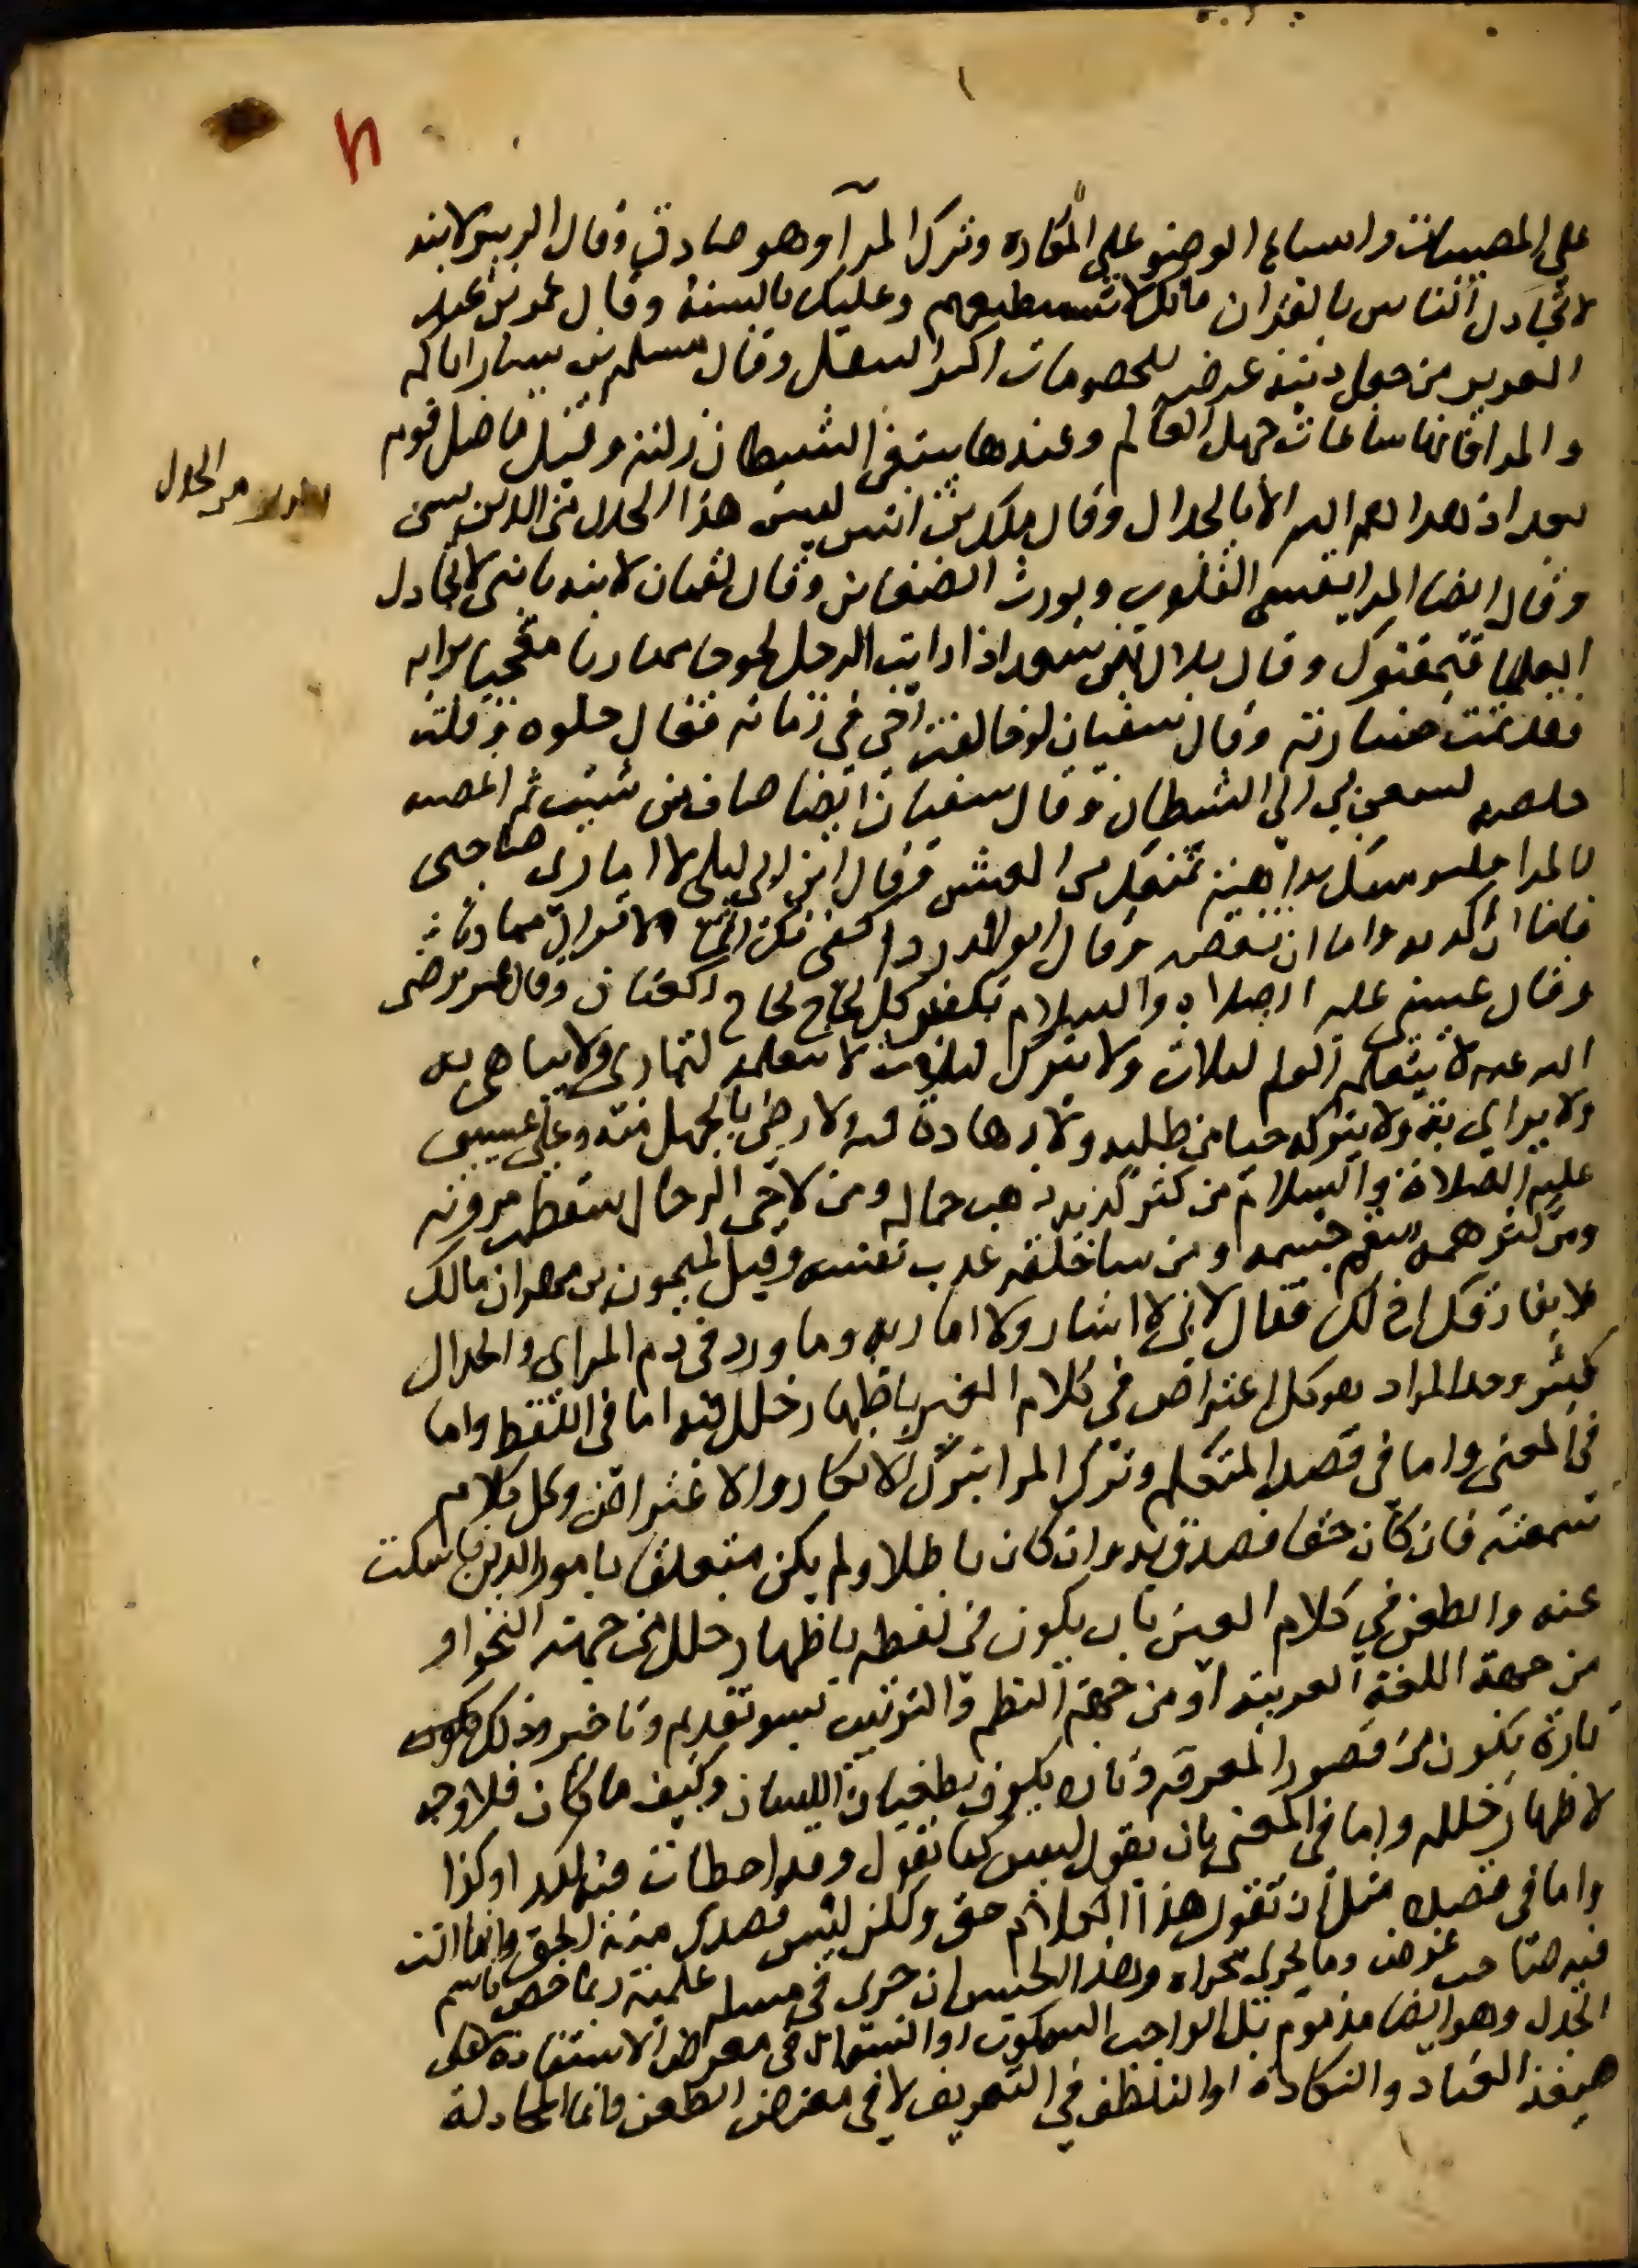 على المصيبات واسباغ الوضو على المكاره وترك المرآ وهو صادق وقال الزبير لابنه
لا تجادل الناس بالقران فانك لا تستطيعهم وعليك بالسنة وقال عمر بن عبد
العزيز من جعل دينه عرضه للخصومات اكثر التنقل وقال مسلم بن يسار اياكم
والمرا فانها ساعات جهل العالم وعندها يبتغي الشيطان زلته وقيل ما ضل قوم
بعد اذ هداهم الله الا بالجدال وقال ملك بن انس ليس هذا الجدال من الدين بشى
وقال ايضا المرا يقسى القلوب ويورث الضغاين وقال لقمان لابنه يا بنى لا تجادل
العلما فيمقتوك وقال بلال بن سعد اذا رايت الرجل لجوجا مماريا معجبا برايه
فقد تمت خسارته وقال سفيان لو خالفت اخى في زمانه فقال حلوه وقلت
حامضه لسعى بي الى الشيطان وقال سفيان ايضا صاف من شيت ثم اغضبه
بالمرا فليرمينك بداهية تمنعك من العيش وقال ابن ابى ليلى لا امارى صاحبى
فاما ان اكذبه واما ان نغضبه وقال ابو الدرداء كفى بك اثما الا تزال مماريا
وقال عيسى عليه الصلاة والسلام تكفير كل لحا ركعتان وقال عمر رضى
الله عنه لا يتعلم العلم لثلاث ولا يترك لثلاث لا تتعلمه لتمارى ولا يباهى به
ولا يراى به ولا يتركه حيا من طلبه ولا زهادة فيه ولا رضى بالجهل منه وعن عيسى
عليه الصلاة والسلام من كثر كذبه ذهب جماله ومن لاحى الرجال سقطت مروته
ومن كثر همه سقم جسمه ومن ساخلقه عذب نفسه وقيل لميمون بن مهران مالك
لا يفارقك اخ لك فقال لانى لا اشار ولا اماريه وما ورد في ذم المراى والجدال
كثير وحد المراء هو كل اعتراض في كلام الغير باظهار خلل فيه اما في اللفظ واما
في المعنى واما في قصد المتكلم وترك المرا بترك الانكار والاعتراض وكل كلام
سمعته فان كان حقا فصدق به وان كان باطلا ولم يكن متعلقا بامور الدين فاسكت
عنه والطعن في كلام الغير بان يكون في لفظه باظهار خلل من جهة النحو او
من جهة اللغة العربية او من جهة النظم والترتيب بسو تقديم وتاخير وذلك
تارة يكون من قصور المعرفه وتارة يكون بطغيان اللسان وكيف ما كان فلا وجه
لاظهار خلله واما في المعنى بان يقول ليس كما تقول وقد اخطات فيه لكذا وكذا
واما في قصده مثل ان تقول هذا الكلام حق ولكن ليس قصدك منه الحق وانما انت
فيه صاحب غرض وما يجرى مجراه وهذا الجنس ان جرى في مسله علمية ربما خص باسم
الجدل وهو ايضا مذموم بل الواجب السكوت او السوال في معرض الاستفادة لا على
صيغة العناد والنكادة او التلطف في التعريف لا في معرض الطعن واما المجادلة